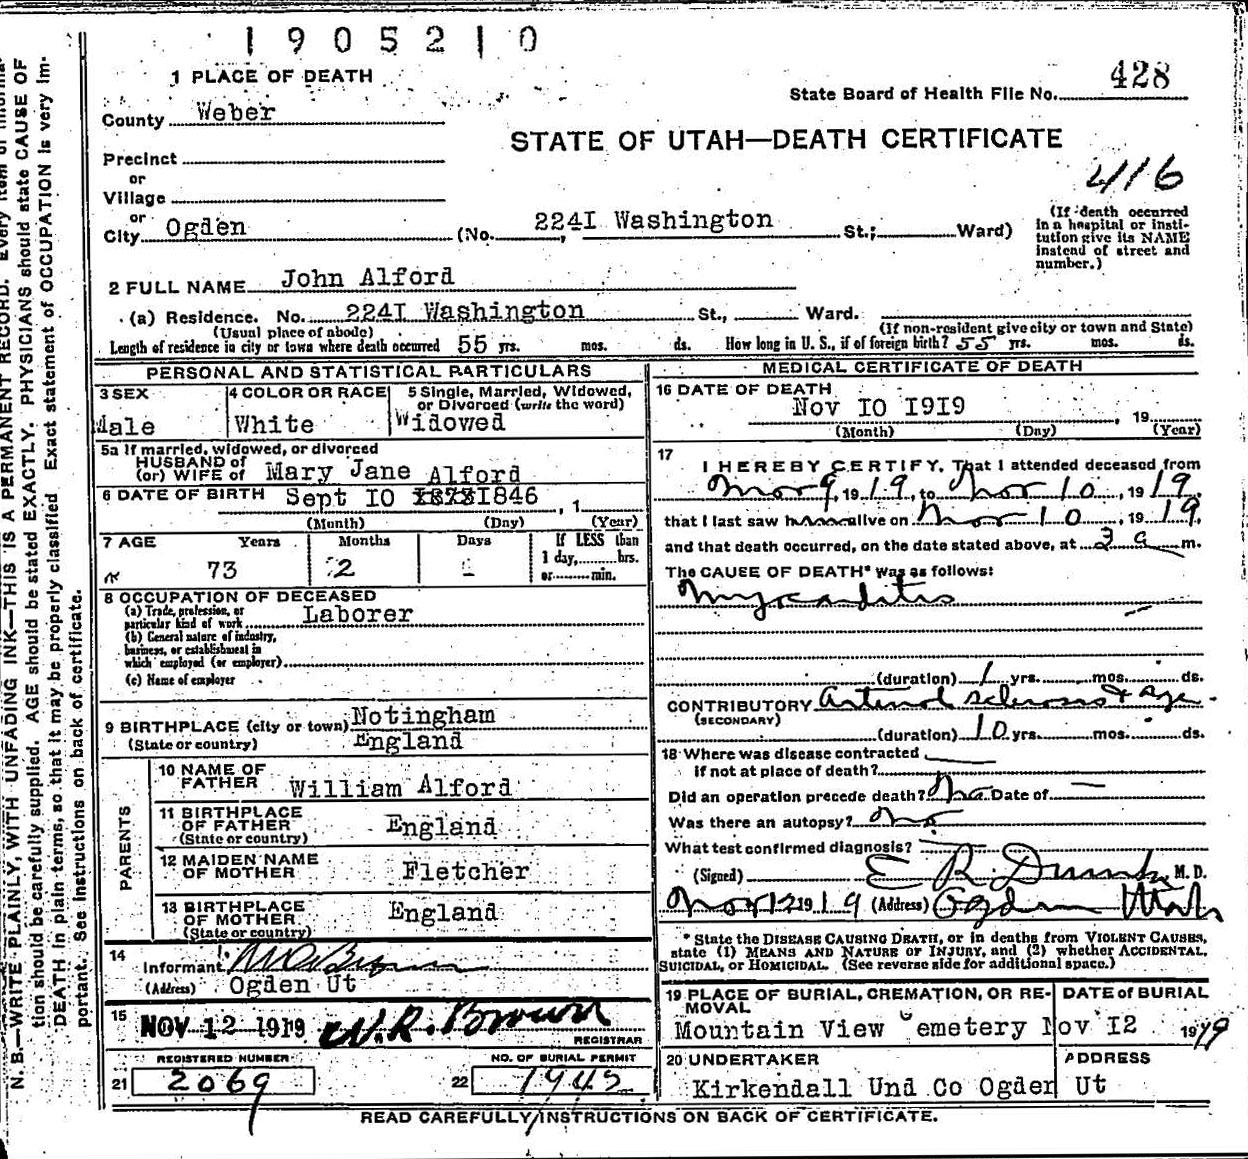 1905210
1 PLACE OF DEATH
State Board of Health File No. 428
County Weber
STATE OF UTAH—DEATH CERTIFICATE
Precinct
or
416
Village
or
City Ogden (No. 224I Washington St.; Ward)
(If death occurred in a hospital or institution give its NAME instead of street and number.)
2 FULL NAME John Alford
(a) Residence. No. 224I Washington St., Ward.
(Usual place of abode) (If non-resident give city or town and State)
Length of residence in city or town where death occurred 55 yrs. mos. ds. How long in U. S., if of foreign birth? 55 yrs. mos. ds.
PERSONAL AND STATISTICAL PARTICULARS
3 SEX
Male
4 COLOR OR RACE
White
5 Single, Married, Widowed, or Divorced (write the word)
Widowed
5a If married, widowed, or divorced
HUSBAND of
(or) WIFE of Mary Jane Alford
6 DATE OF BIRTH Sept IO I846, 1
(Month) (Day) (Year)
7 AGE Years Months Days If LESS than
1 day, hrs.
or min.
73 2 -
8 OCCUPATION OF DECEASED
(a) Trade, profession, or
particular kind of work Laborer
(b) General nature of industry,
business, or establishment in
which employed (or employer)
(c) Name of employer
9 BIRTHPLACE (city or town) Notingham
(State or country) England
PARENTS
10 NAME OF
FATHER William Alford
11 BIRTHPLACE
OF FATHER England
(State or country)
12 MAIDEN NAME
OF MOTHER Fletcher
13 BIRTHPLACE
OF MOTHER England
(State or country)
14
Informant
(Address) Ogden Ut
15 NOV 12 1919 W.R. Brown
REGISTRAR
REGISTERED NUMBER NO. OF BURIAL PERMIT
21 2069 22 1945
MEDICAL CERTIFICATE OF DEATH
16 DATE OF DEATH
Nov IO I9I9 19
(Month) (Day) (Year)
17
I HEREBY CERTIFY, That I attended deceased from
Nov 9, 1919, to Nov 10, 1919,
that I last saw him alive on Nov 10, 1919,
and that death occurred, on the date stated above, at 3 a m.
The CAUSE OF DEATH* was as follows:
Myocarditis
(duration) 1 yrs. mos. ds.
CONTRIBUTORY Arterial sclerosis & age
(SECONDARY)
(duration) 10 yrs. mos. ds.
18 Where was disease contracted
if not at place of death?
Did an operation precede death? No Date of —
Was there an autopsy? no
What test confirmed diagnosis?
(Signed) E R M. D.
Nov 12 1919 (Address) Ogden Utah
* State the DISEASE CAUSING DEATH, or in deaths from VIOLENT CAUSES,
state (1) MEANS AND NATURE OF INJURY, and (2) whether ACCIDENTAL,
SUICIDAL, or HOMICIDAL. (See reverse side for additional space.)
19 PLACE OF BURIAL, CREMATION, OR REMOVAL DATE of BURIAL
Mountain View Cemetery Nov I2 1919
20 UNDERTAKER ADDRESS
Kirkendall Und Co Ogden Ut
READ CAREFULLY INSTRUCTIONS ON BACK OF CERTIFICATE.
N. B.—WRITE PLAINLY, WITH UNFADING INK—THIS IS A PERMANENT RECORD. Every item of informa-
tion should be carefully supplied. AGE should be stated EXACTLY. PHYSICIANS should state CAUSE OF
DEATH in plain terms, so that it may be properly classified. Exact statement of OCCUPATION is very im-
portant. See instructions on back of certificate.